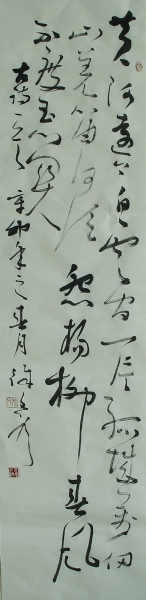 黄河遠上白云间一片孤城万仞
山羌笛何须怨杨柳春风
不度玉门关
古诗一首辛卯年之春月徐